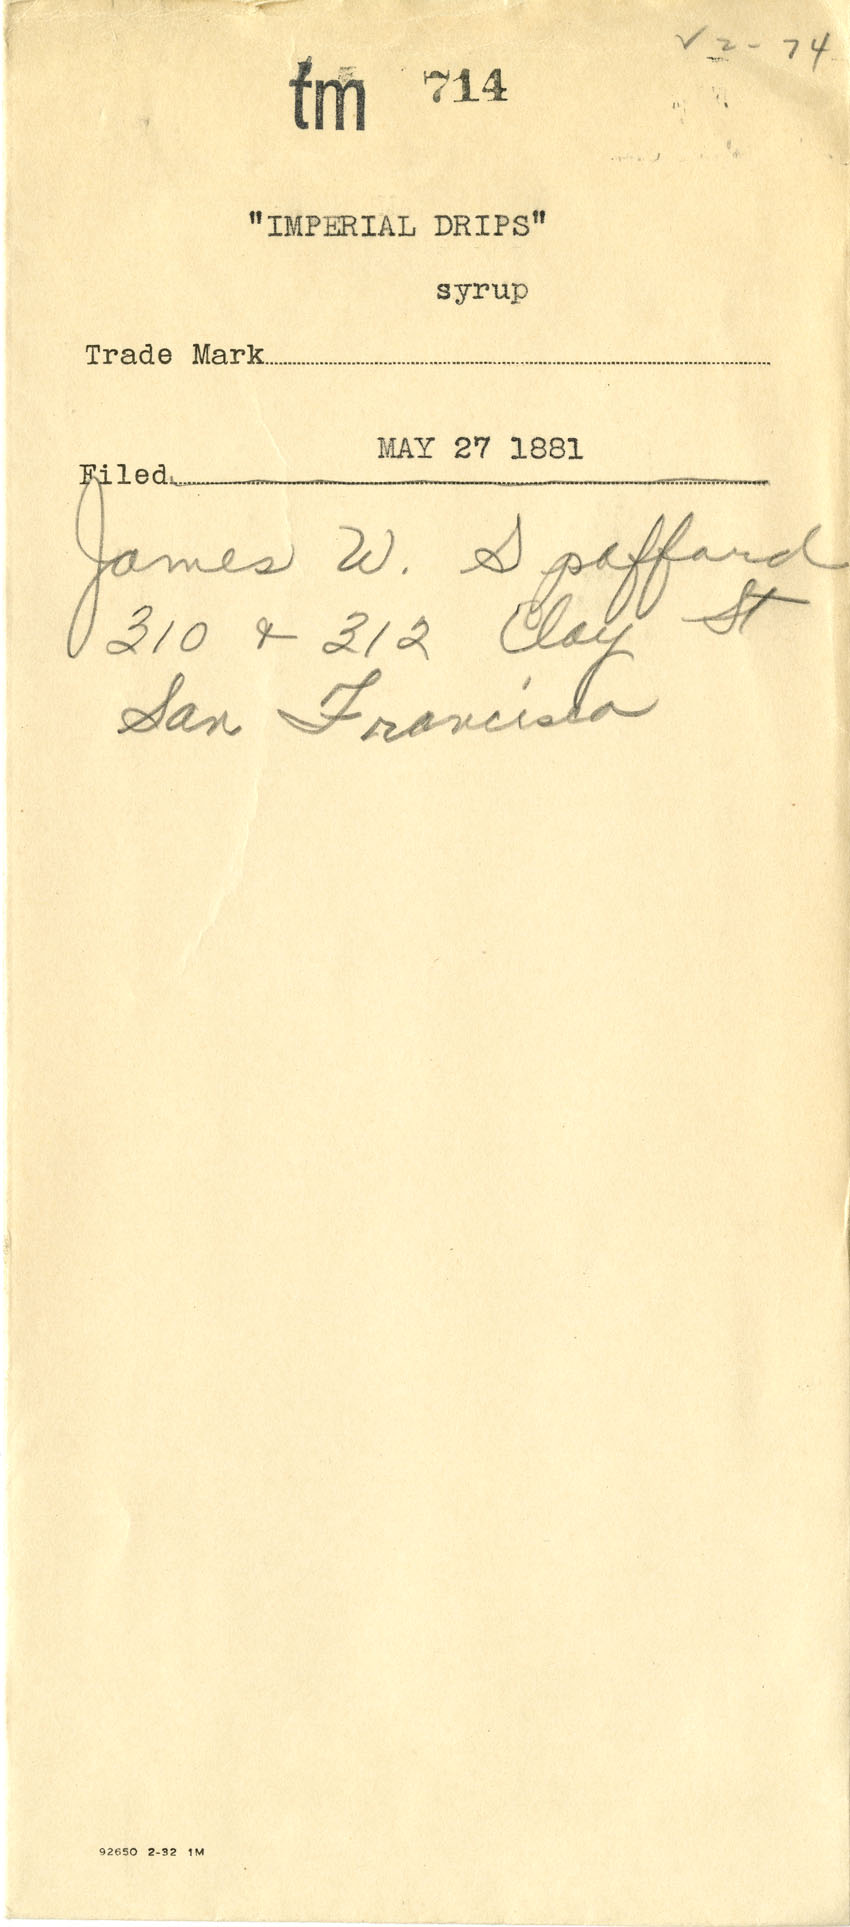 ✓ 2-74
tm 714
"IMPERIAL DRIPS"
syrup
Trade Mark
MAY 27 1881
Filed
James W. Spaffard
310 & 312 Clay St
San Francisco
92650 2-32 1M